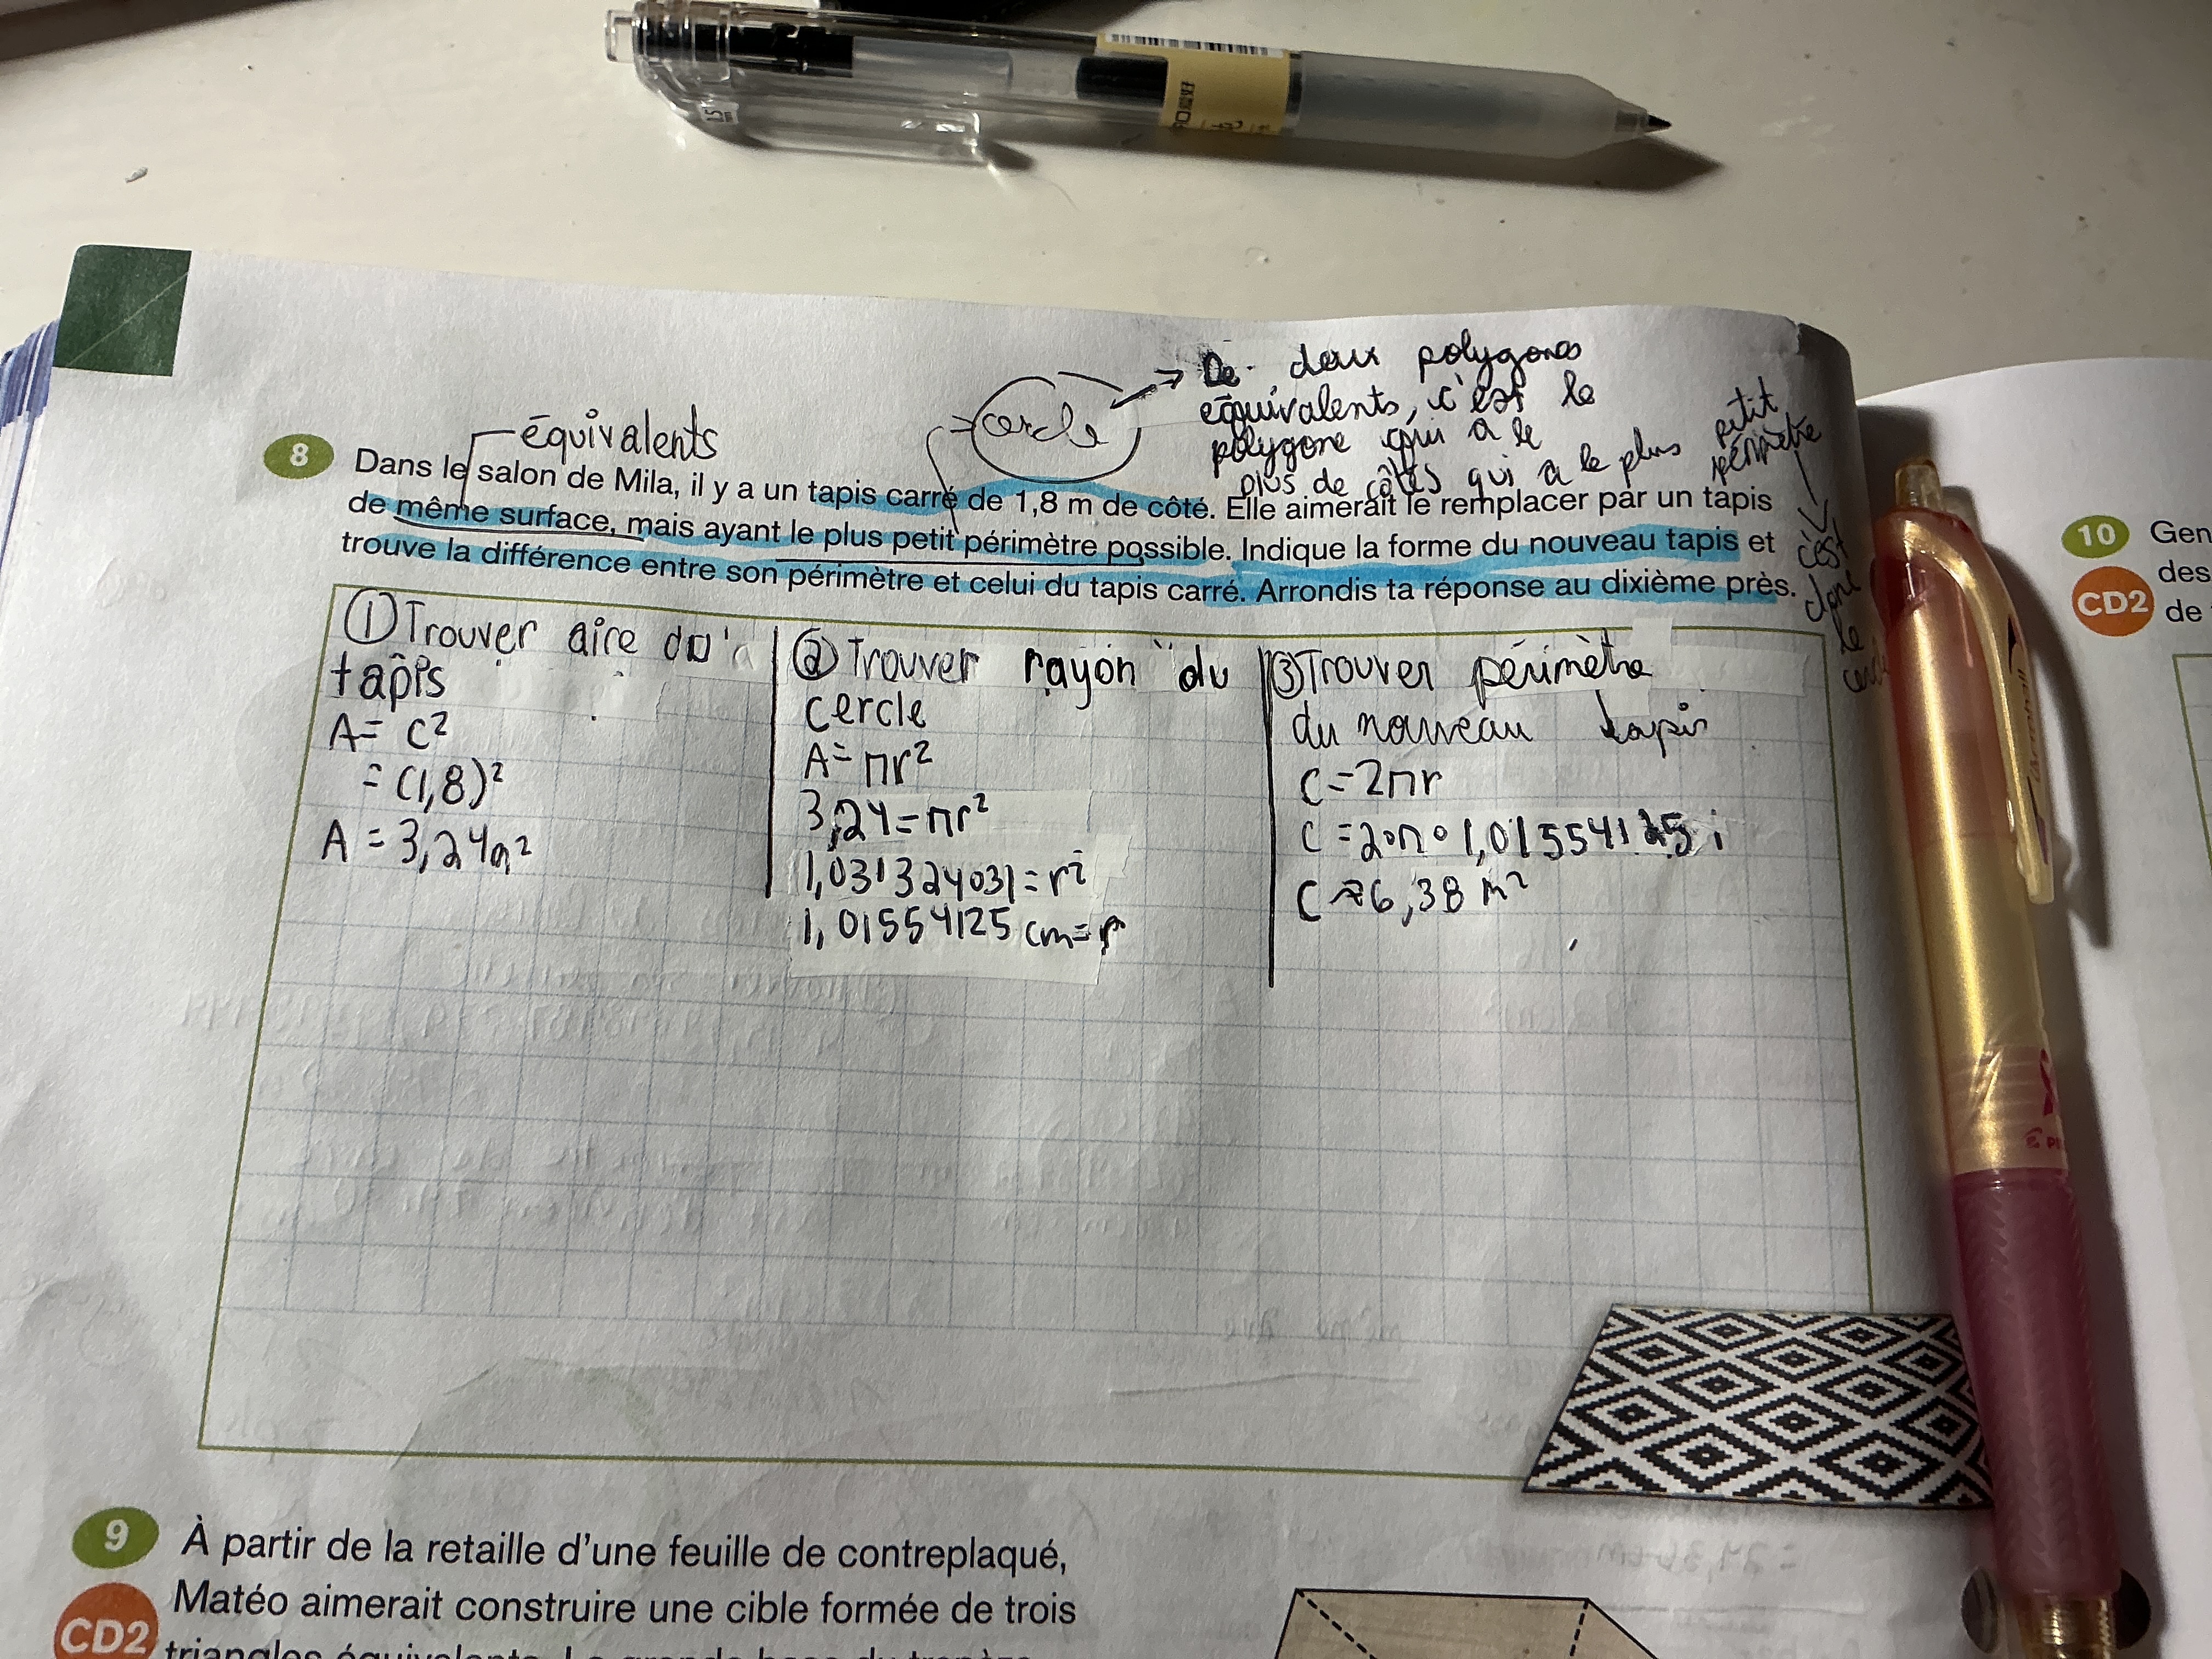 cercle
De deux polygones
équivalents, c'est le
polygone qui a le
plus de côtés qui a le plus petit
périmètre
c'est
donc
le
équivalents
8 Dans le salon de Mila, il y a un tapis carré de 1,8 m de côté. Elle aimerait le remplacer par un tapis
de même surface, mais ayant le plus petit périmètre possible. Indique la forme du nouveau tapis et
trouve la différence entre son périmètre et celui du tapis carré. Arrondis ta réponse au dixième près.
① Trouver aire du
tapis
A = c²
= (1,8)²
A = 3,24
② Trouver rayon du
cercle
A = πr²
3,24 = πr²
1,031324031 = r²
1,01554125 cm = r
③ Trouver périmètre
du nouveau tapis
C = 2πr
C = 2•π•1,01554125
C ≈ 6,38 m²
9 À partir de la retaille d'une feuille de contreplaqué,
CD2 Matéo aimerait construire une cible formée de trois
triangles équivalents.
10 Gen
CD2 des
de